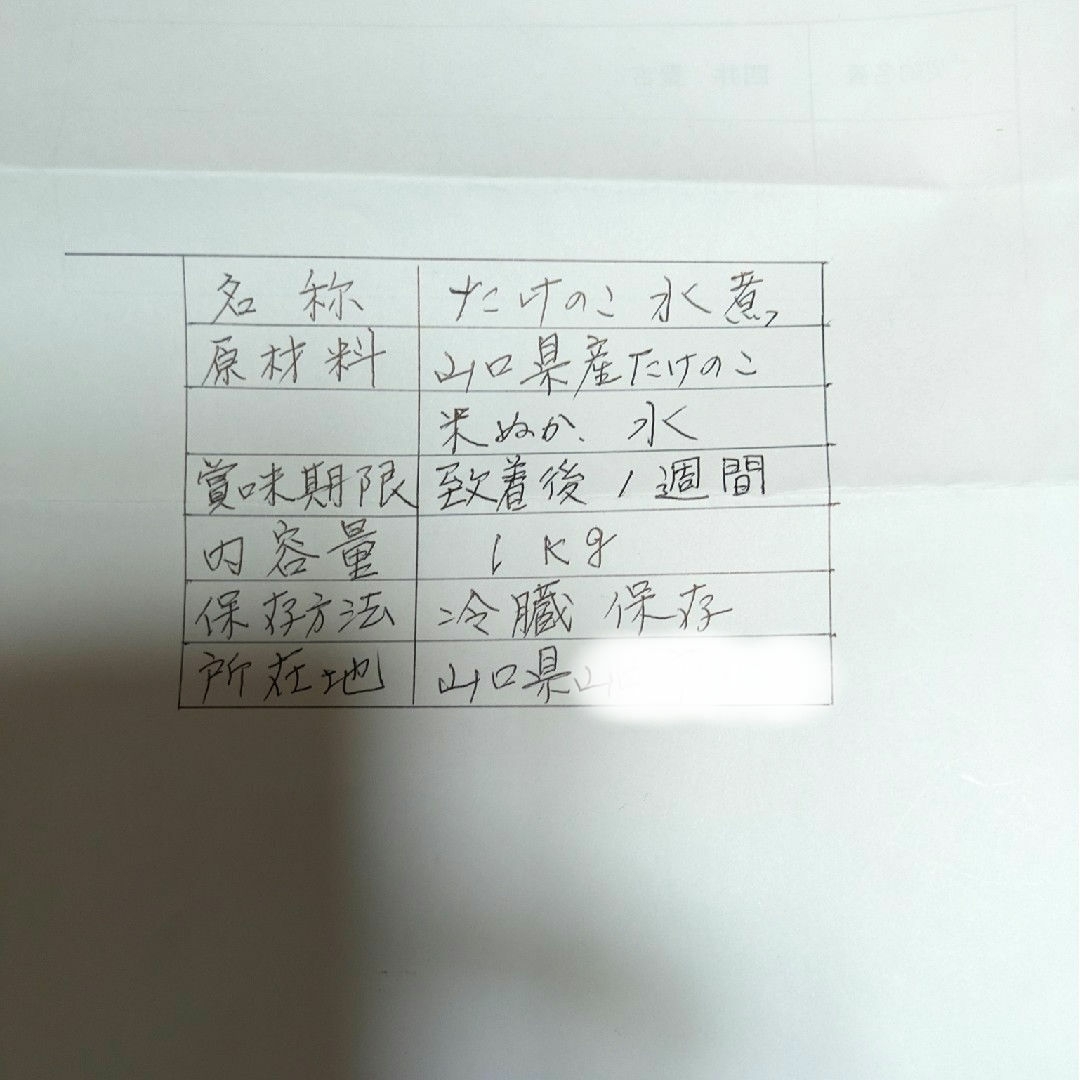 名称 たけのこ水煮
原材料 山口県産たけのこ
米ぬか、水
賞味期限 致着後1週間
内容量 1kg
保存方法 冷臓保存
所在地 山口県山